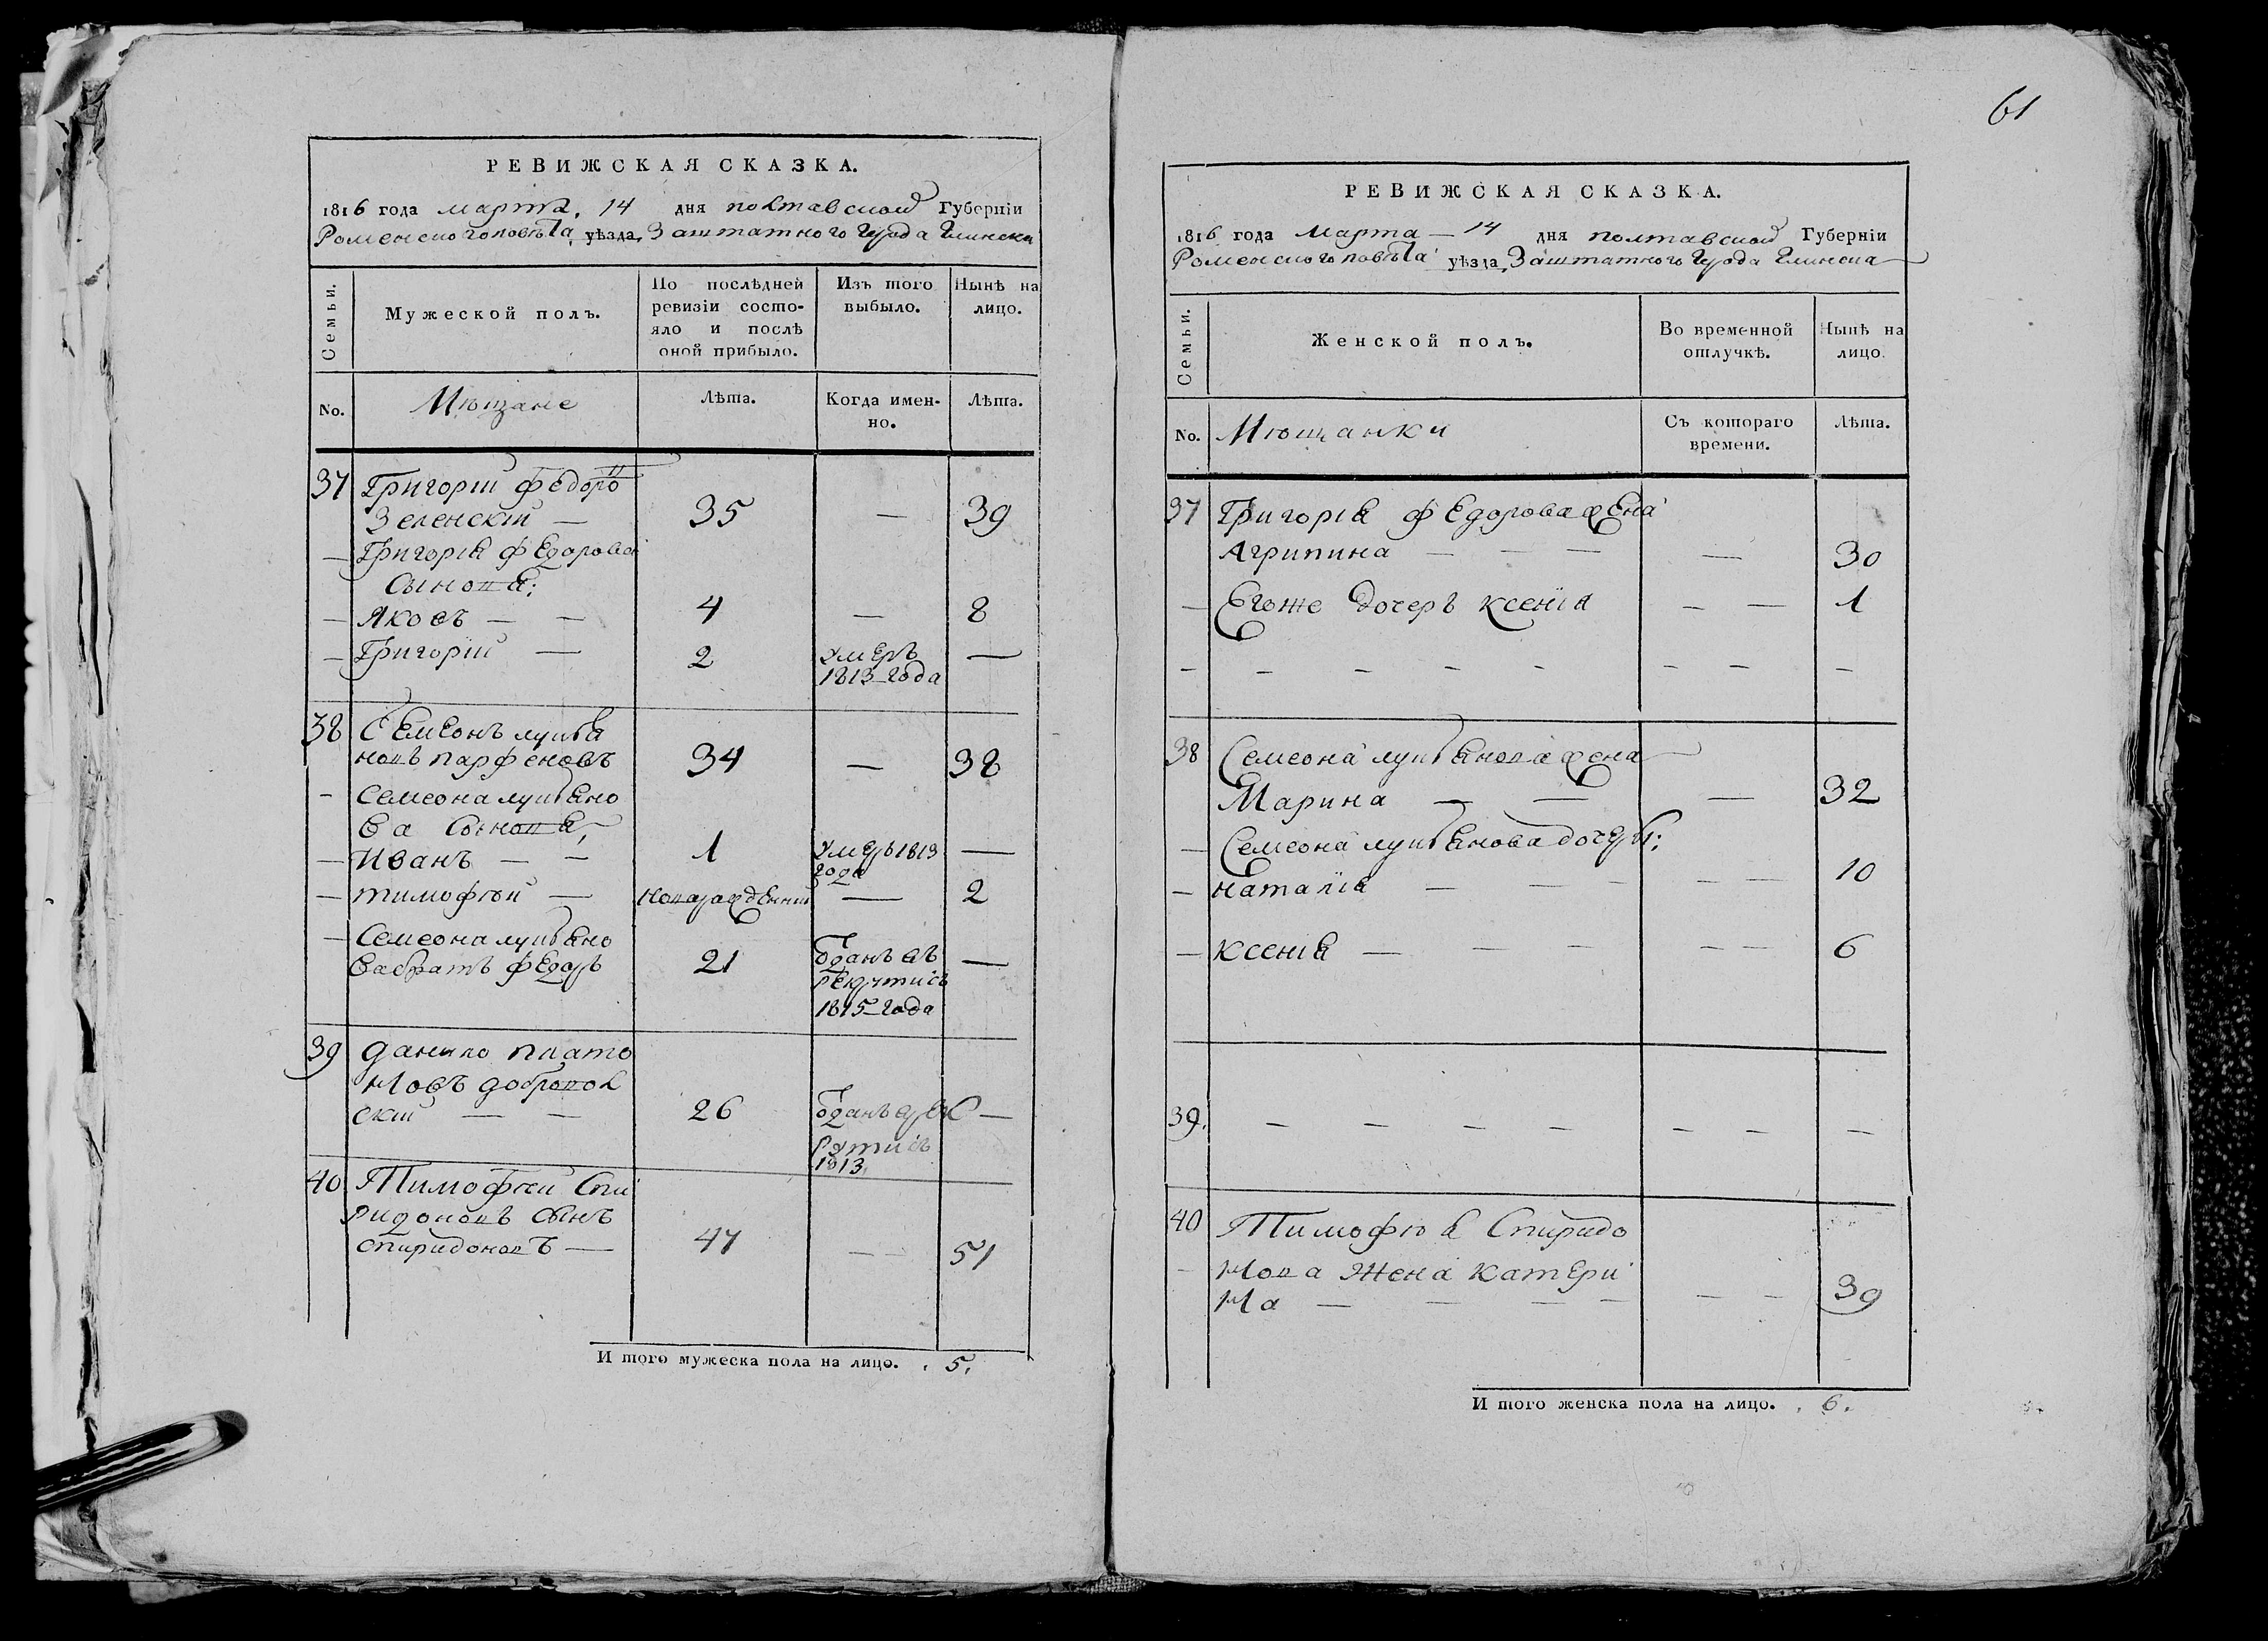 РЕВИЖСКАЯ СКАЗКА.
1816 года марта. 14 дня полтавской Губерніи
Роменского повѣта уѣзда, Заштатного города Глинска
Семьи.
Мужеской полъ.
По послѣдней
ревизіи состо-
яло и послѣ
оной прибыло.
Изъ того
выбыло.
Нынѣ на
лицо.
No.
Мѣщане
Лѣта.
Когда имен-
но.
Лѣта.
37 Григорій федоровъ
Зеленскій — 35 — 39
— Григорія федорова
Сыновя:
— Яковъ — — 4 — 8
— Григорій — 2 умеръ —
1813 года
38 Семеонъ лукья
новъ парфеновъ 34 — 38
— Семеона лукьяно
ва Сыновя,
— Иванъ — — 1 умеръ 1813 —
года
— тимофѣй — новорожденній — 2
— Семеона лукьяно
ва братъ федоръ 21 отданъ въ —
рекруты съ
1815 года
39 данило плато
новъ доброволь
скій — — 26 отданъ в рек —
руты съ
1813.
40 Тимофѣй Спи
ридоновъ сынъ
спиридоновъ — 47 — — 51
И того мужеска пола на лицо. . 5.
61
РЕВИЖСКАЯ СКАЗКА.
1816 года марта — 14 дня полтавской Губерніи
Роменского повѣта уѣзда, Заштатного города Глинска
Семьи.
Женской полъ.
Во временной
отлучкѣ.
Нынѣ на
лицо.
No.
Мѣщанки
Съ котораго
времени.
Лѣта.
37 Григорія федорова жена
Агрипина — — — — 30
— Егоже дочеръ ксенія — — 1
— — — — — — — — —
38 Семеона лукьянова жена
Марина — — — 32
— Семеона лукьянова дочери:
— наталія — — — — — 10
— ксенія — — — — — 6
39. — — — — — — —
40 Тимофѣя Спиридо
— нова жена катери
на — — — — — — 39
И того женска пола на лицо. . 6.